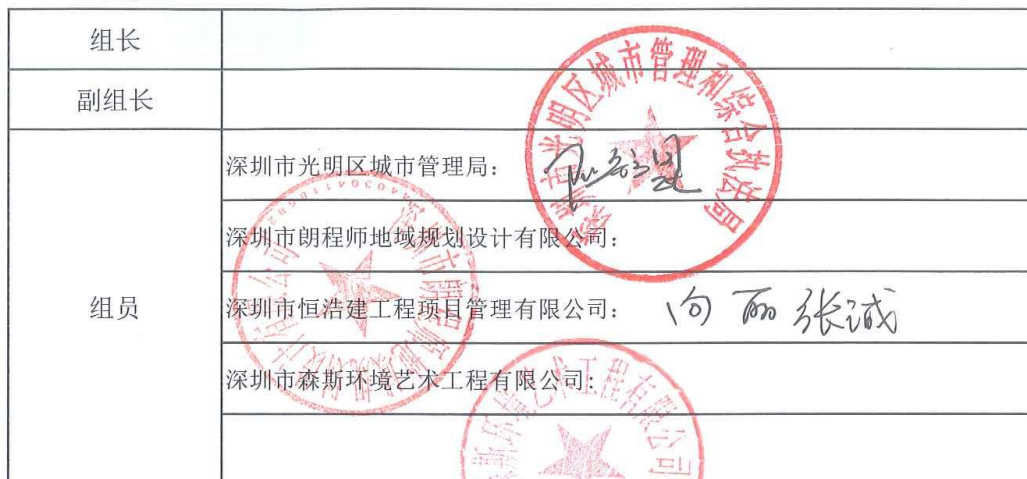 组长
副组长
深圳市光明区城市管理局：
深圳市朗程师地域规划设计有限公司：
组员
深圳市恒浩建工程项目管理有限公司： 向丽 张诚
深圳市森斯环境艺术工程有限公司：
深圳市光明区城市管理和综合执法局
深圳市朗程师地域规划设计有限公司
斯环境艺术工程有限公司